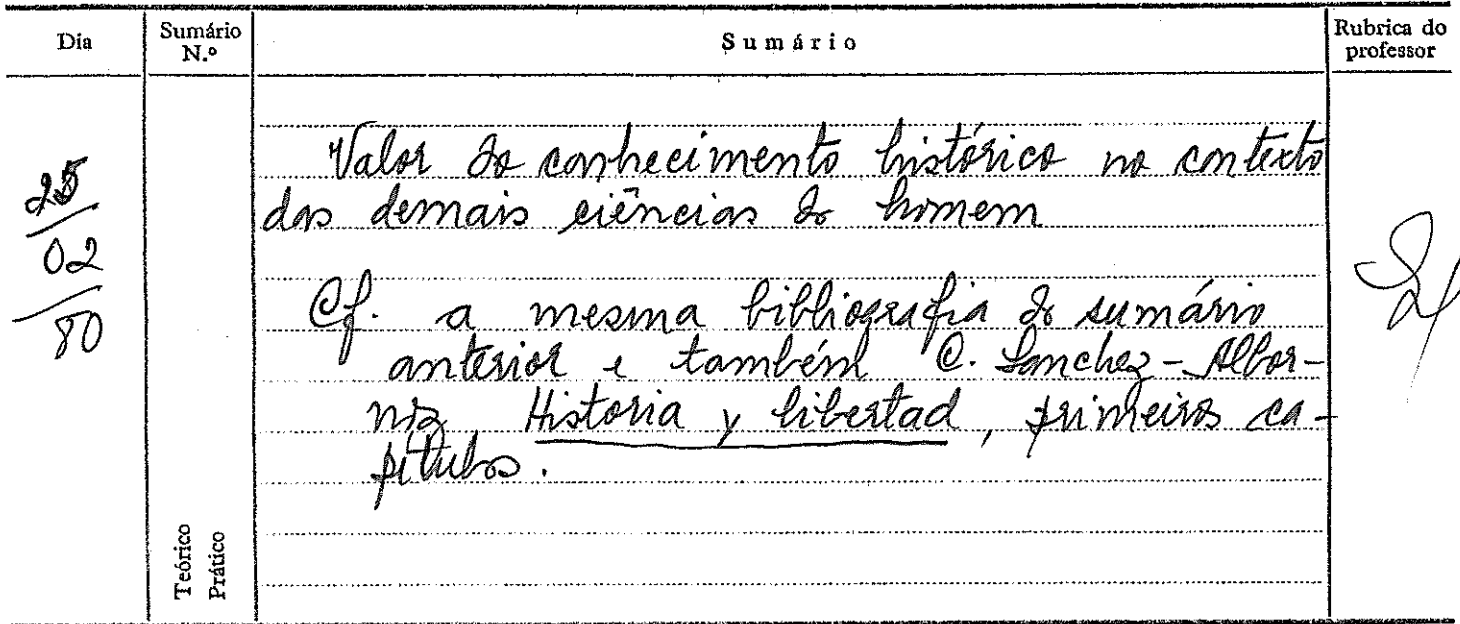 Dia
Sumário N.º
Sumário
Rubrica do professor
25/02/80
Valor do conhecimento histórico no contexto
das demais ciências do homem
Cf. a mesma bibliografia do sumário
anterior e também C. Sanchez-Albor-
noz, Historia y libertad, primeiros ca-
pítulos.
Teórico
Prático